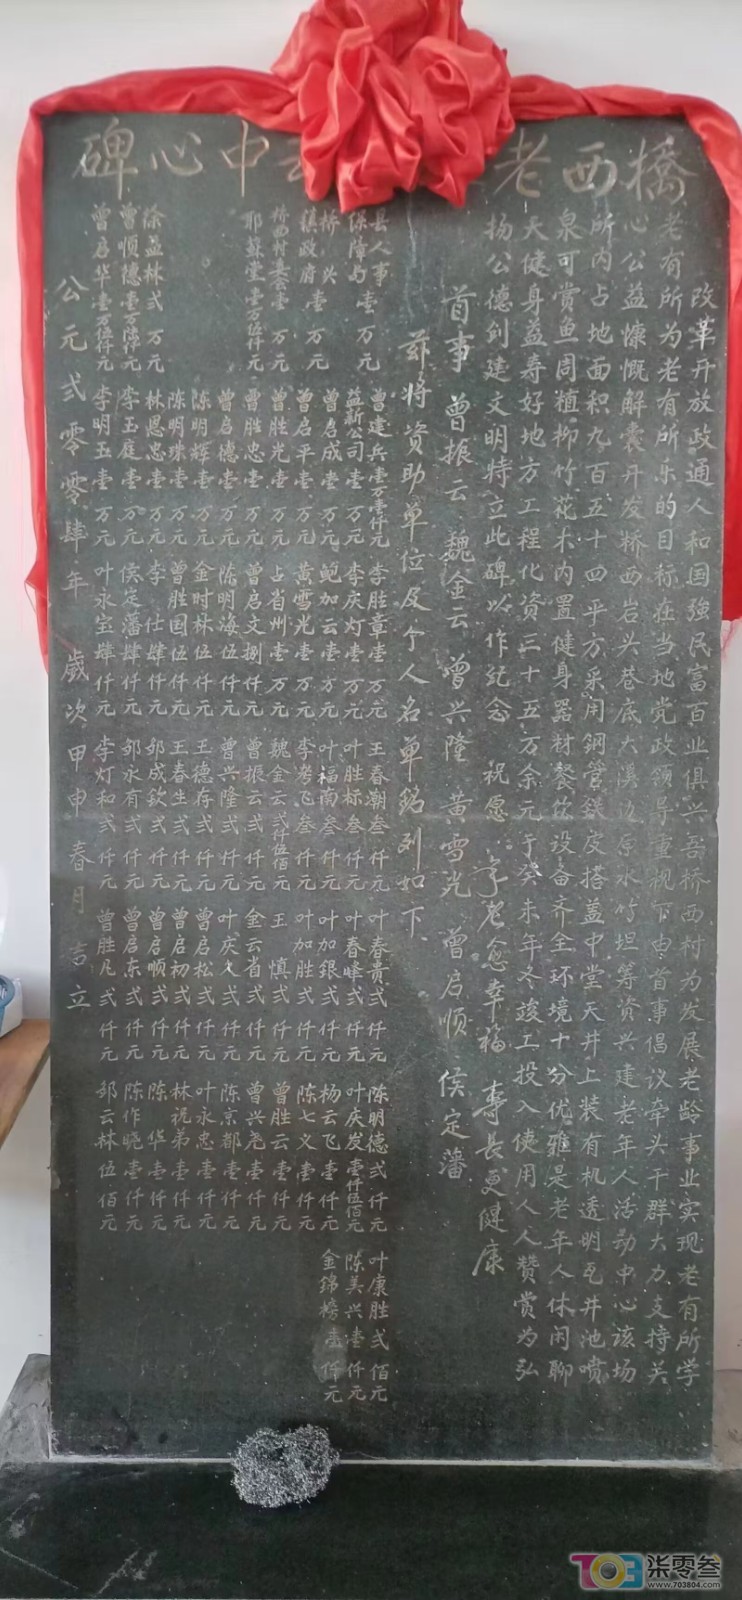 橋西老 中心碑
改革开放政通人和国強民富百业俱兴吾桥西村为发展老龄事业实现老有所学
老有所为老有所乐的目标在当地党政领导重视下由首事倡议牵头干群大力支持关
心公益慷慨解囊开发桥西岩头巷底大溪边原水竹坦筹资兴建老年人活动中心该场
所内占地面积九百五十四平方采用鋼管鉄皮搭盖中堂天井上装有机透明瓦井池喷
泉可赏鱼周植柳竹花木内置健身器材餐饮设备齐全环境十分优雅是老年人休闲聊
天健身益寿好地方工程化资三十五万余元于癸未年冬竣工投入使用人人赞赏为弘
扬公德创建文明特立此碑以作纪念 祝愿：年老愈幸福 寿长更健康
首事 曾振云 魏金云 曾兴隆 黄雪光 曾启顺 侯定藩
兹将资助单位及个人名单銘列如下
县人事保障局壹万元 曾建兵壹万壹仟元 李胜章壹万元 王春潮叁仟元 叶春贵弍仟元 陈明德弍仟元 叶康胜弍佰元
桥兴镇政府壹万元 益新公司壹万元 李庆灯壹万元 叶胜标叁仟元 叶春峰弍仟元 叶庆发壹仟伍佰元 陈美兴壹仟元
曾启成壹万元 鲍加云壹万元 叶福南叁仟元 叶加銀弍仟元 杨云飞壹仟元 金錦榜壹仟元
曾启平壹万元 黄雪光壹万元 李考飞叁仟元 叶加胜弍仟元 陈七义壹仟元
桥西村 壹万元 曾胜光壹万元 占省州壹万元 魏金云弍仟伍佰元 王 慎弍仟元 曾胜云壹仟元
耶蘇堂壹万伍仟元 曾胜忠壹万元 曾启文捌仟元 曾振云弍仟元 金云省弍仟元 曾兴尧壹仟元
曾启德壹万元 陈明海伍仟元 曾兴隆弍仟元 叶庆久弍仟元 陈京都壹仟元
陈明辉壹万元 金时林伍仟元 王德存弍仟元 曾启松弍仟元 叶永忠壹仟元
陈明珠壹万元 曾胜国伍仟元 王春生弍仟元 曾启初弍仟元 林祝弟壹仟元
徐益林弍万元 林恩忠壹万元 李 仕肆仟元 邹成钦弍仟元 曾启顺弍仟元 陈 华壹仟元
曾順德壹万陆仟元 李玉庭壹万元 侯定藩肆仟元 邹永有弍仟元 曾启东弍仟元 陈作晓壹仟元
曾启华壹万伍仟元 李明玉壹万元 叶永宝肆仟元 李灯和弍仟元 曾胜凡弍仟元 邹云林伍佰元
公元弍零零肆年 歲次甲申春月吉立
柒零叁
www.703804.com